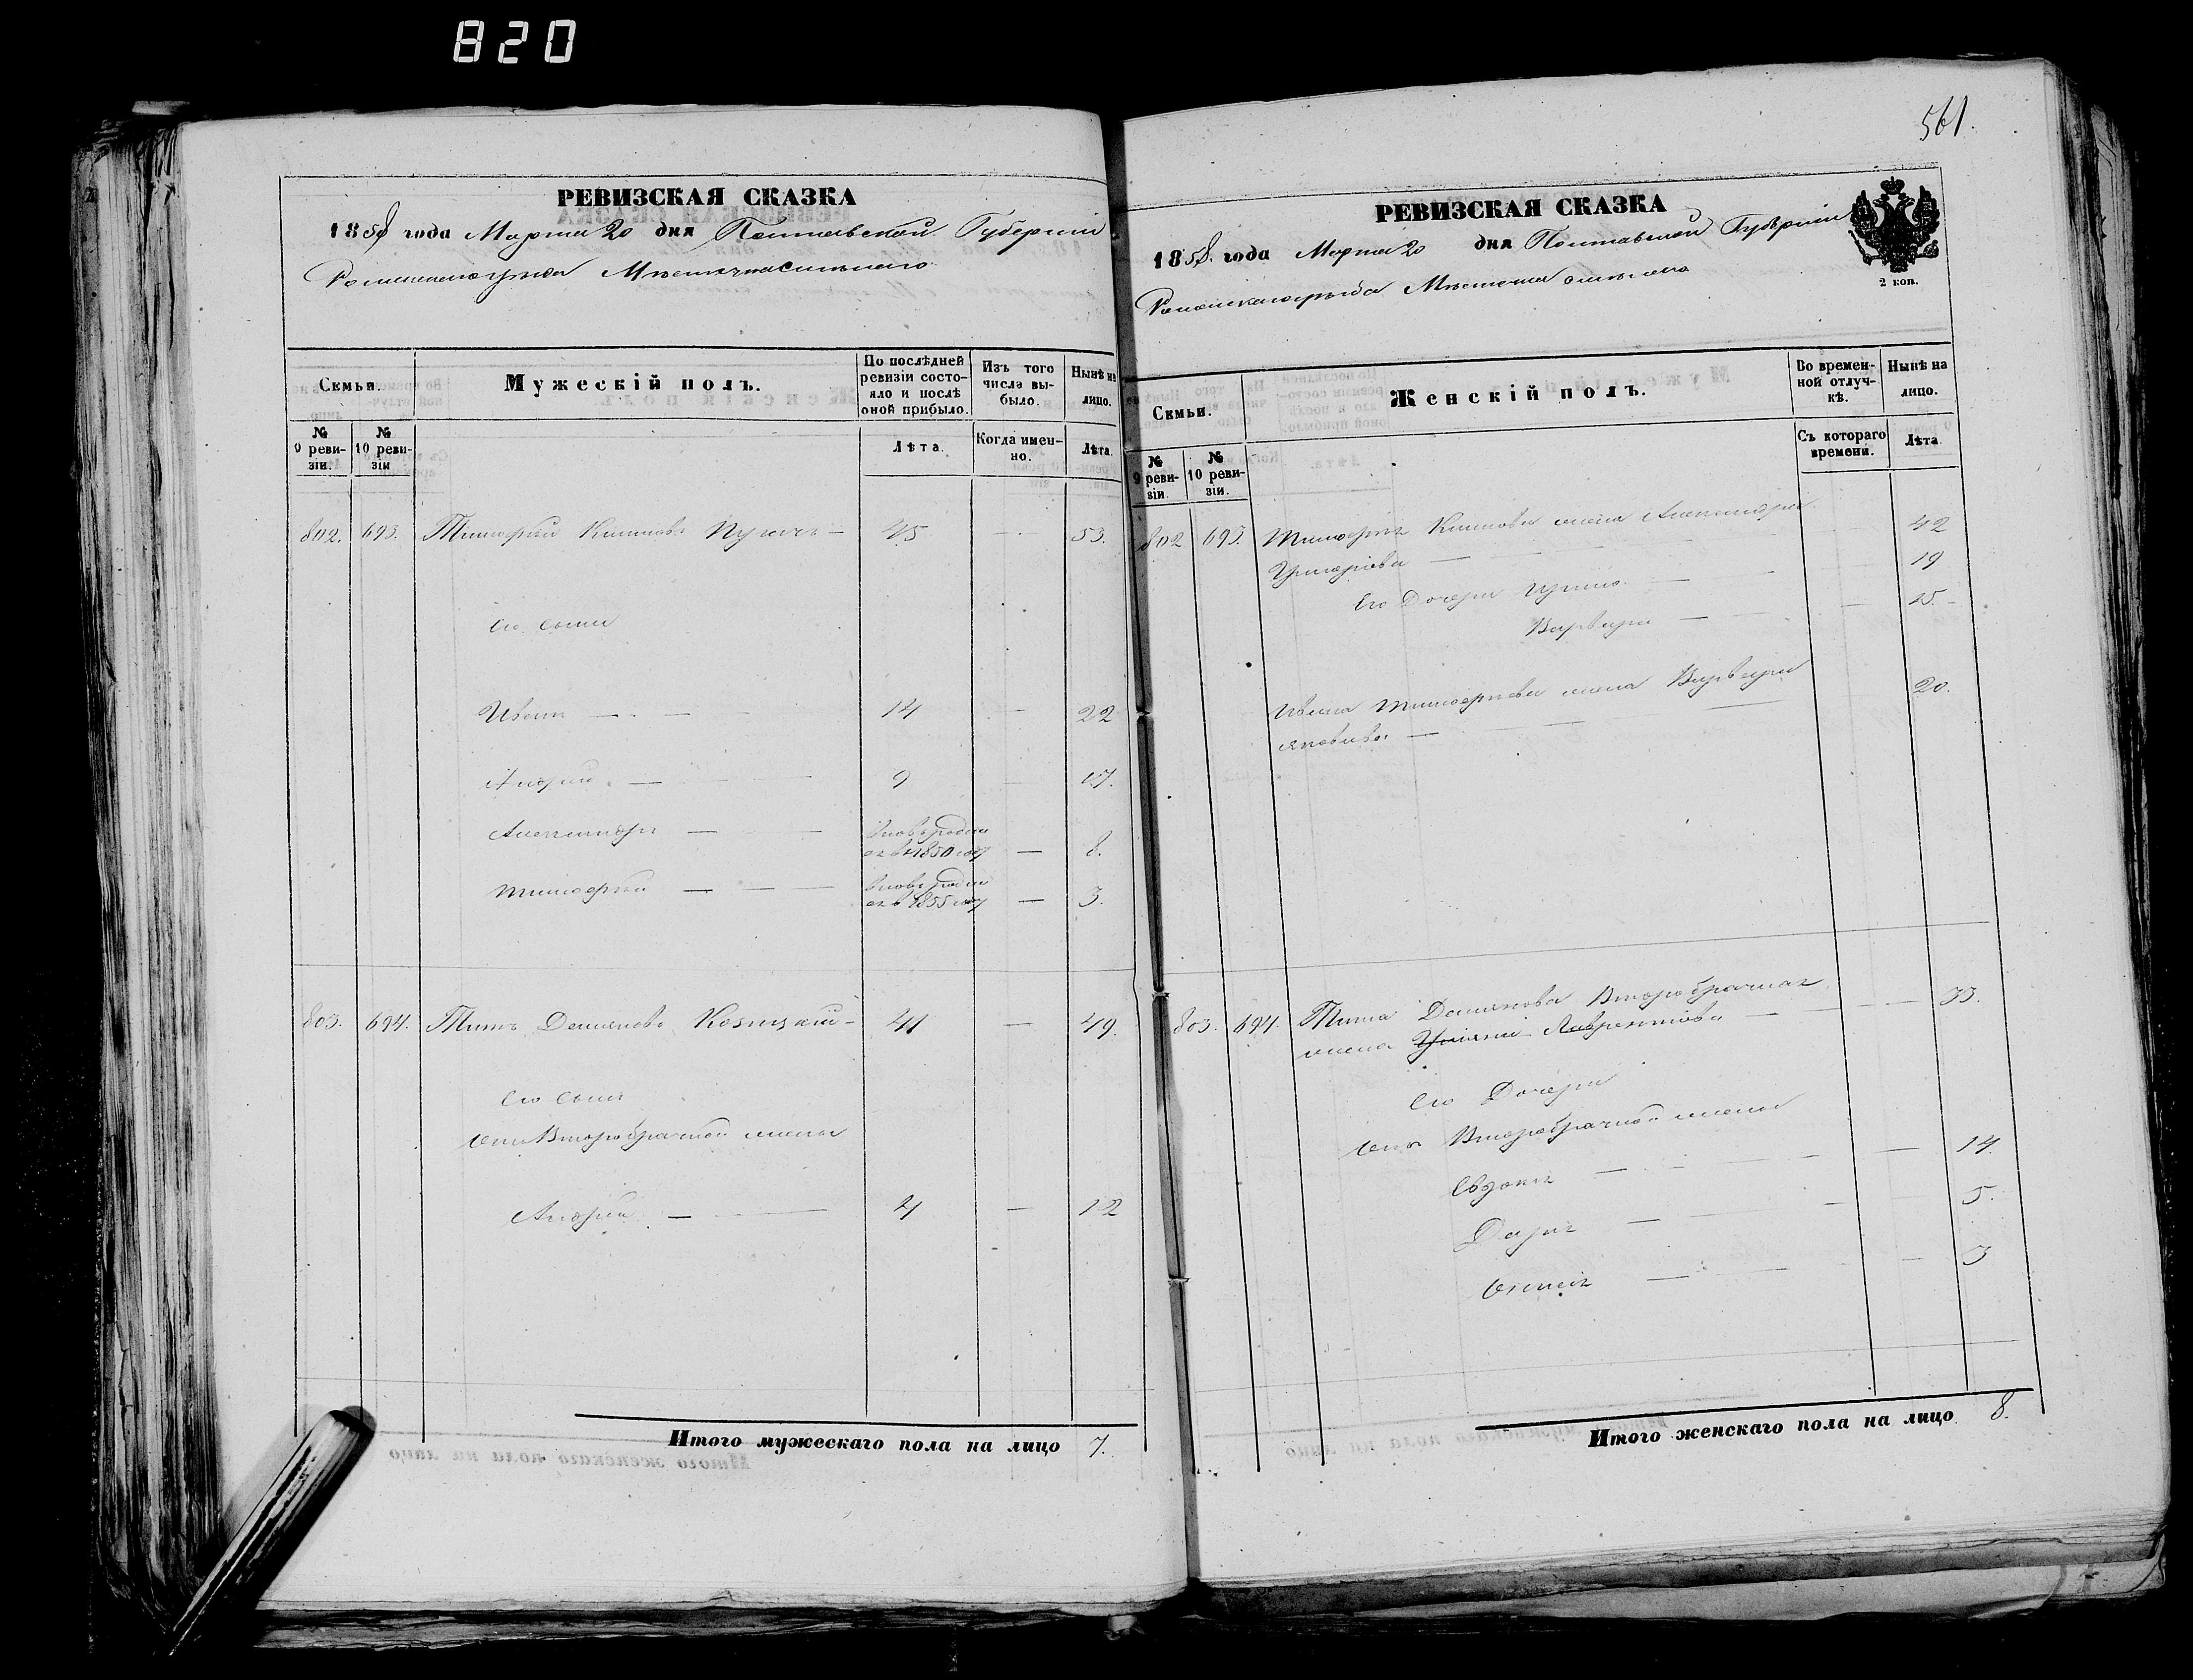 820
561.
РЕВИЗСКАЯ СКАЗКА
1858 года Марта 20 дня Полтавской Губерніи
Роменского уезда Местечка Смелого
Семьи.
Мужескій полъ.
По послѣдней ревизіи состояло и послѣ оной прибыло.
Изъ того числа выбыло.
Нынѣ на лицо.
№ 9 ревизіи.
№ 10 ревизіи
Лѣта.
Когда именно.
Лѣта.
802. 693. Тимофей Климовъ 45 53.
Его сыни
Иванъ 14 22
Андрей 9 17.
Александръ вновь родил ся в 1850 году 8.
Тимофей вновь родил ся в 1855 году 3.
803. 694. Титъ Демяновъ 41 49.
Его сынъ
Отъ Второбрачной жены
Андрей 4 12
Итого мужескаго пола на лицо 7.
РЕВИЗСКАЯ СКАЗКА
1858. года Марта 20 дня Полтавской Губерніи
Роменского уезда Местечка Смелого
2 коп.
Семьи.
Женскій полъ.
Во временной отлучкѣ.
Нынѣ на лицо.
№ 9 ревизіи
№ 10 ревизіи.
Съ котораго времени.
Лѣта.
802 693. Тимофея Климова жена Александра 42
Его Дочери 19
Варвара 15.
Ивана Тимофеева жена Варвара 20.
Яковлева
803. 694. Тита Демянова Второбрачная 33.
жена Лаврентіова
Его Дочери
Отъ Второбрачной жены
Евдокія 14.
Дарія 5.
3
Итого женскаго пола на лицо 8.